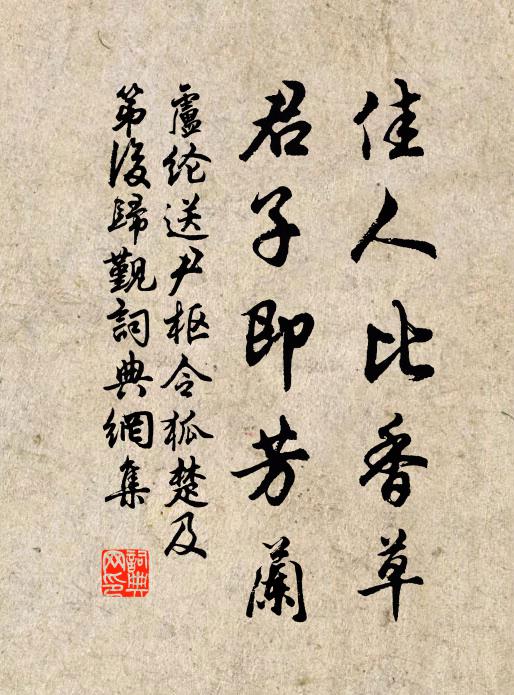 佳人比香草
君子即芳蘭
盧纶送尹枢令狐楚及
第後歸覲詞典網集
詞典网印